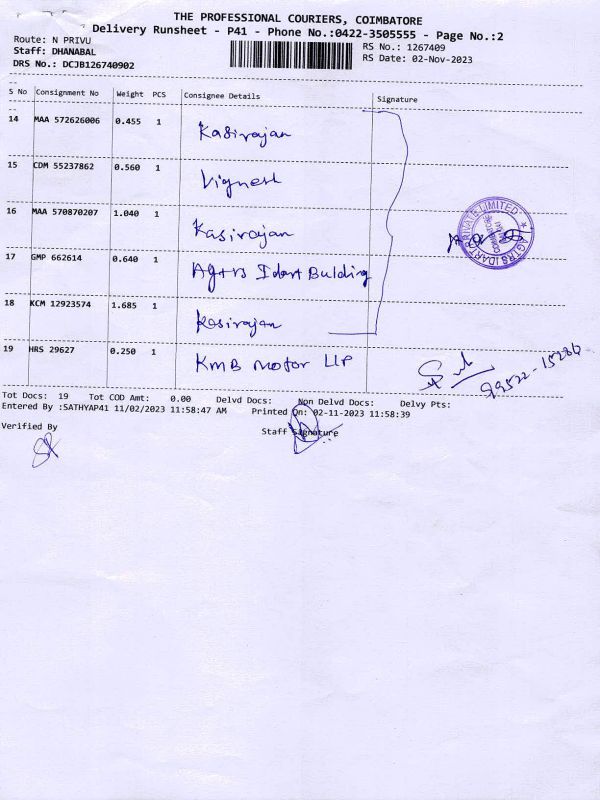 THE PROFESSIONAL COURIERS, COIMBATORE
Delivery Runsheet - P41 - Phone No.:0422-3505555 - Page No.:2
Route: N PRIVU
RS No.: 1267409
Staff: DHANABAL
RS Date: 02-Nov-2023
DRS No.: DCJB126740902
S No Consignment No Weight PCS Consignee Details Signature
14 MAA 572626006 0.455 1 Kasirajan
15 CDM 55237862 0.560 1 Vignesh
16 MAA 570870207 1.040 1 Kasirajan
AGTRS IDART PRIVATE LIMITED
17 GMP 662614 0.640 1 Agtrs Idart Bulding
18 KCM 12923574 1.685 1 Kasirajan
19 HRS 29627 0.250 1 KMB Motor LLP
99522-15286
Tot Docs: 19 Tot COD Amt: 0.00 Delvd Docs: Non Delvd Docs: Delvy Pts:
Entered By :SATHYAP41 11/02/2023 11:58:47 AM Printed On: 02-11-2023 11:58:39
Verified By Staff Signature